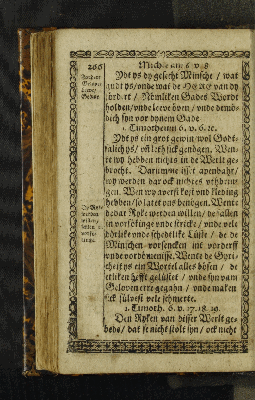 266
Micheæ am 6. v. 8
Ydt ys dy gesecht Minsche / wat
gudt ys / vnde wat de HERE van dy
vördert / Nömliken Gades Wordt
holden / vnde leve öven / vnde demö-
dich syn vor dynem Gade
1. Timotheum 6. v. 6. &c.
Ydt ys ein grot gewin / wol Godt-
salich ys / vñ lest sick genögen. Wen-
te wy hebben nichts in de Werlt ge-
brocht. Darumme isset apenbahr /
wy werden dar ock nichtes vthbrin-
gen. Wen wy averst kost vnd kleding
hebben / so latet vns benögen. Wente
de dar Ryke werden willen / de fallen
in vorsökinge vnde stricke / vnde vele
dörlike vnde schedlike Lüste / de de
Minschen vorsencken int vorderff
vnde vordömenisse. Wente de Gyri-
cheit ys ein Wortel alles bösen / de
etliken hefft gelüstet / vnde syn vam
Geloven erre gegahn / vnde maken
sick sülvest vele schmerte.
1. Timoth. 6. v. 17. 18. 19.
Den Ryken van disser Werlt ge-
bede / dat se nicht stolt syn / ock nicht